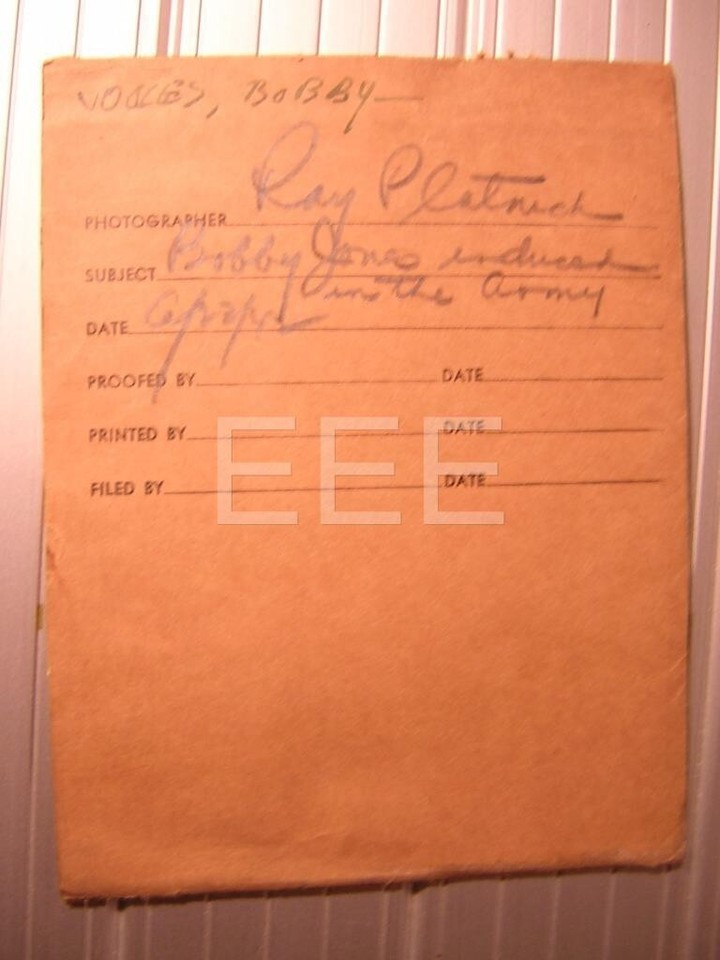 BOBBY—
PHOTOGRAPHER Ray Platnick
SUBJECT Bobby Jones inducted
in the Army
DATE
PROOFED BY DATE
PRINTED BY DATE
EEE
FILED BY DATE